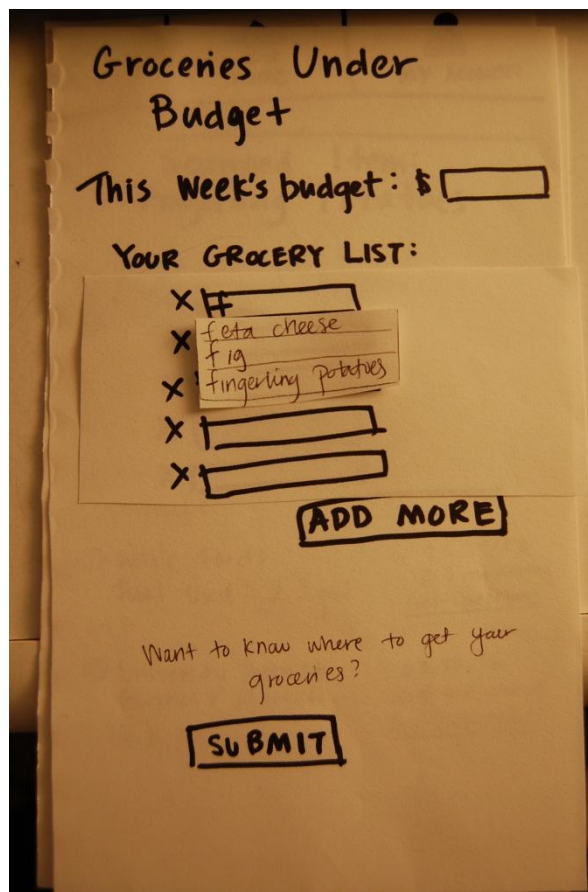 Groceries Under
Budget
This Week's budget: $
YOUR GROCERY LIST:
X f
X feta cheese
fig
X fingerling potatoes
X
X
ADD MORE
Want to know where to get your
groceries?
SUBMIT